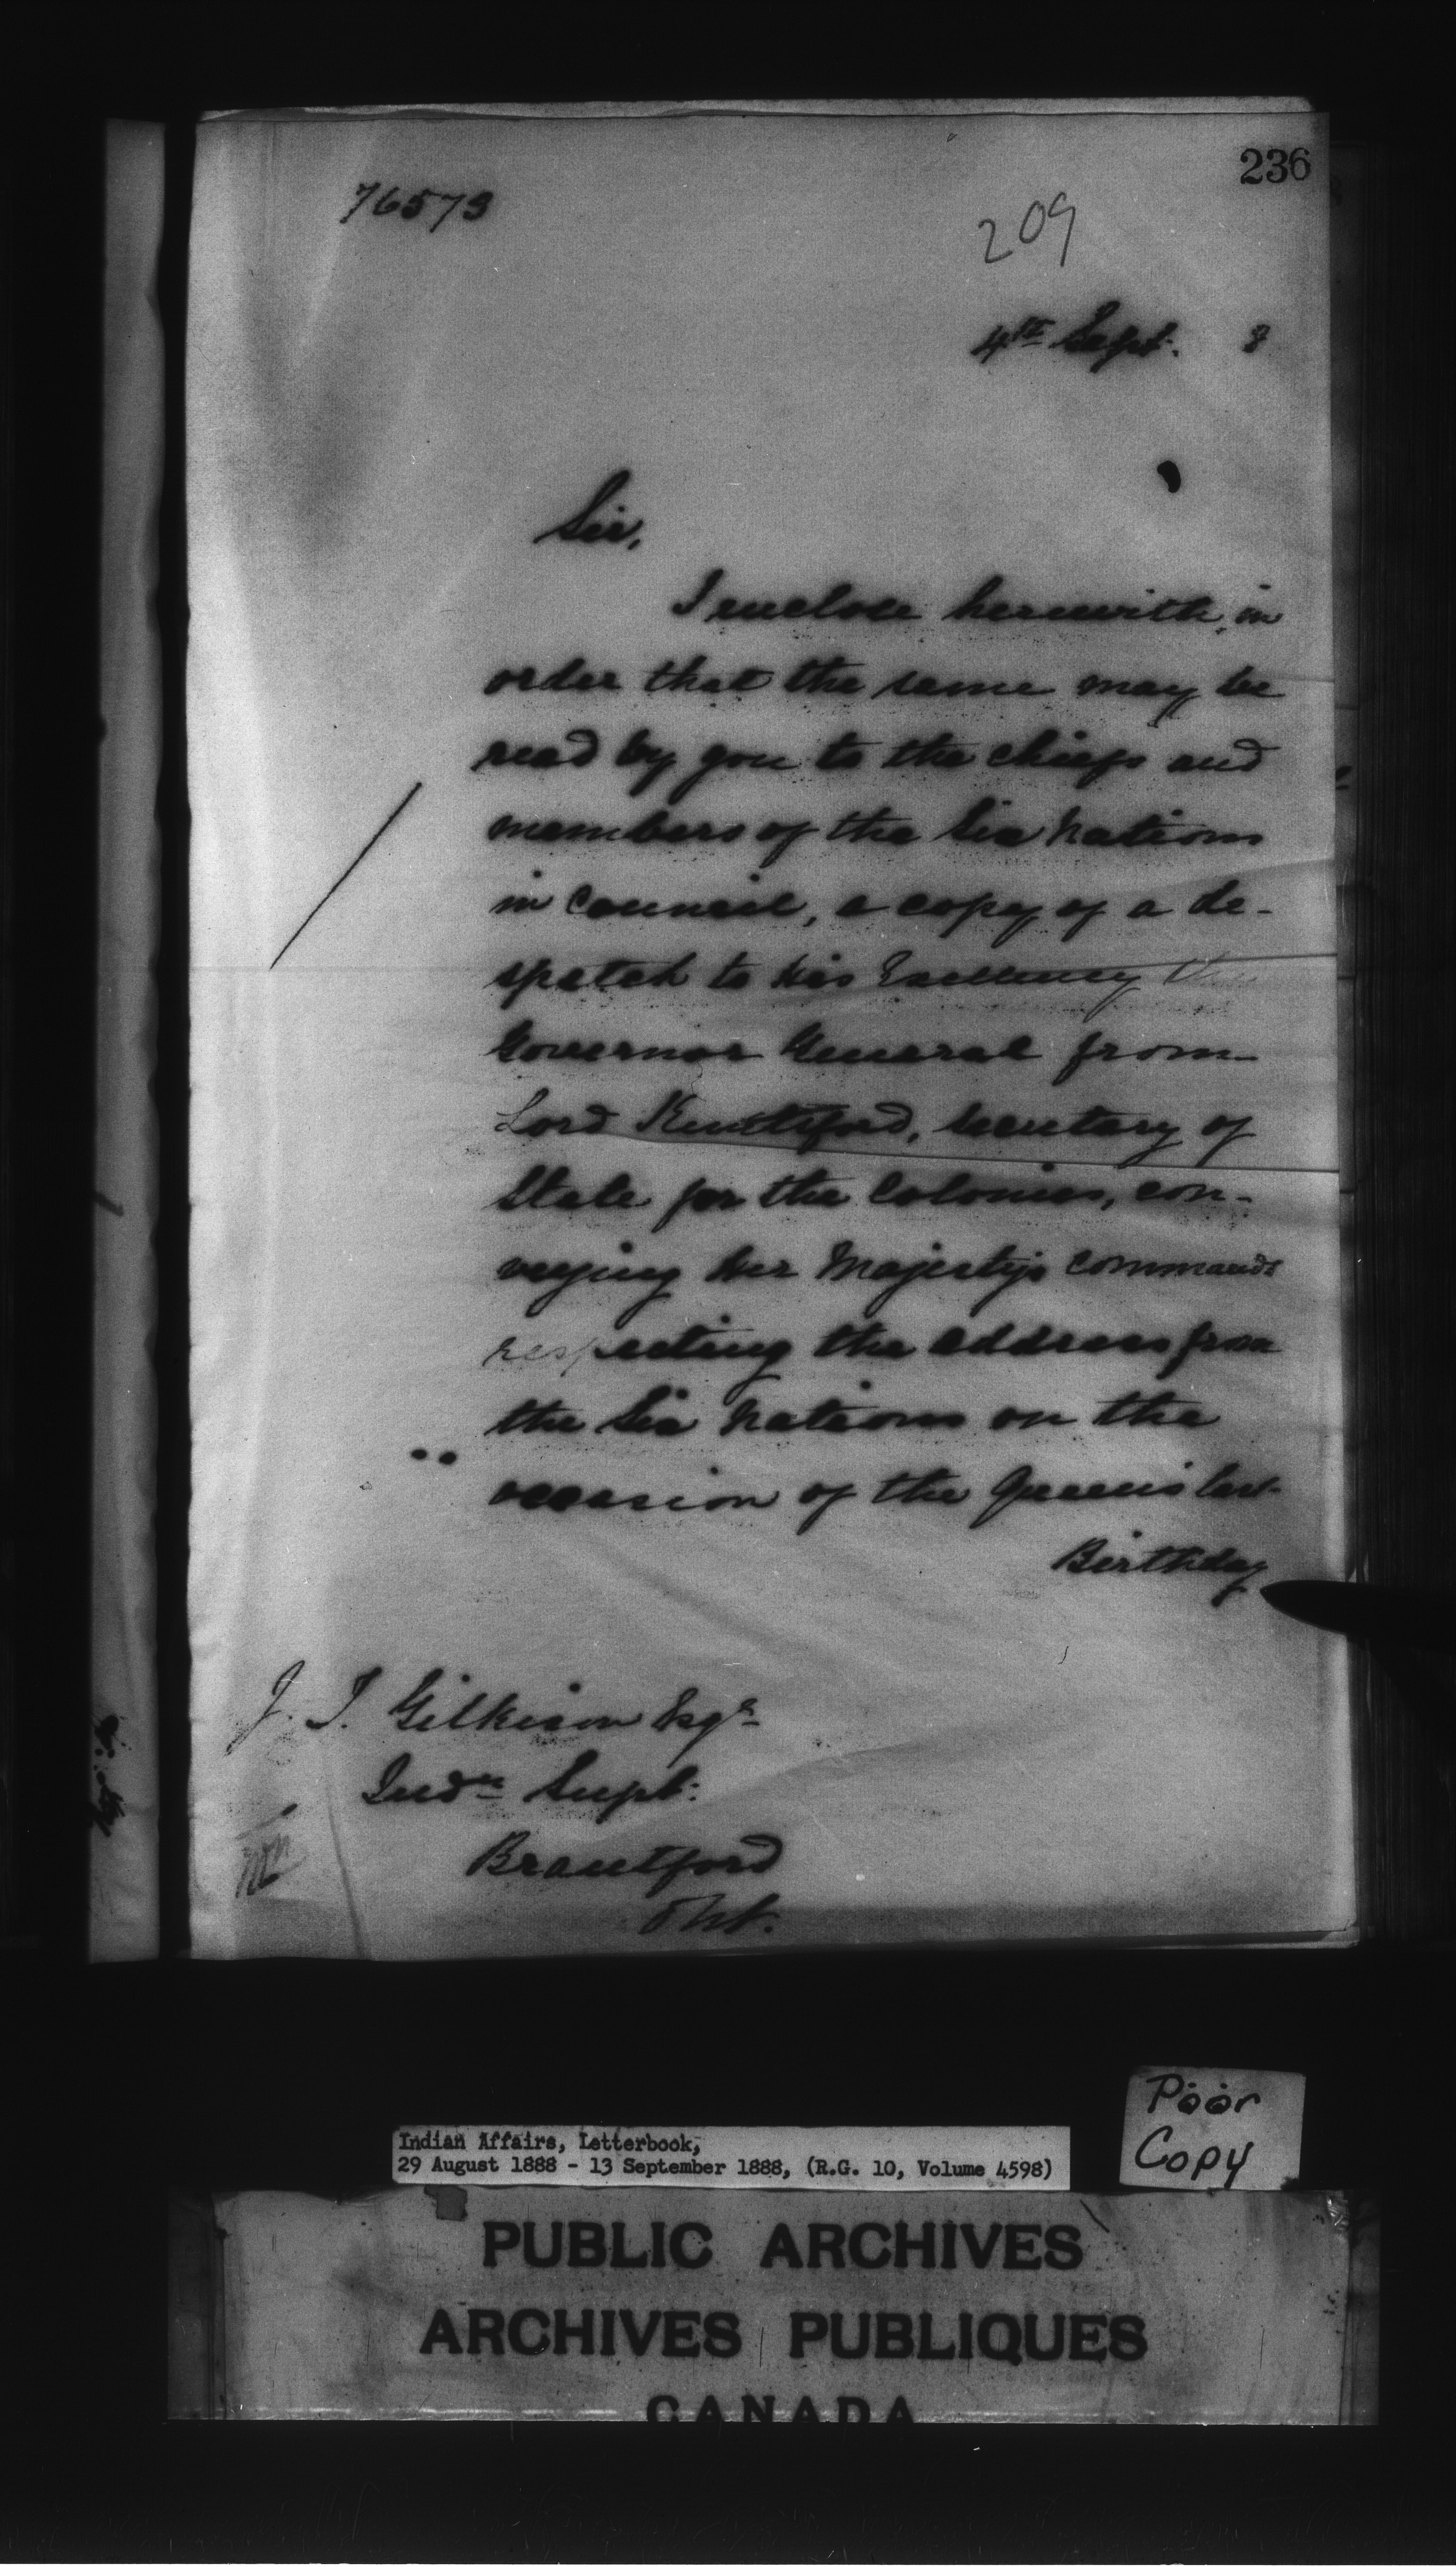 236
76573
209
4th Sept. 8
Sir,
I enclose herewith, in
order that the same may be
read by you to the chiefs and
members of the Six Nations
in Council, a copy of a de-
spatch to His Excellency the
Governor General from
Lord Knutsford, Secretary of
State for the Colonies, con-
veying Her Majesty's commands
respecting the address from
the Six Nations on the
occasion of the Queen's last
Birthday
J. T. Gilkison Esqr
Indn Supt:
Brantford
Ont.
Poor
Copy
Indian Affairs, Letterbook,
29 August 1888 - 13 September 1888, (R.G. 10, Volume 4598)
PUBLIC ARCHIVES
ARCHIVES PUBLIQUES
CANADA